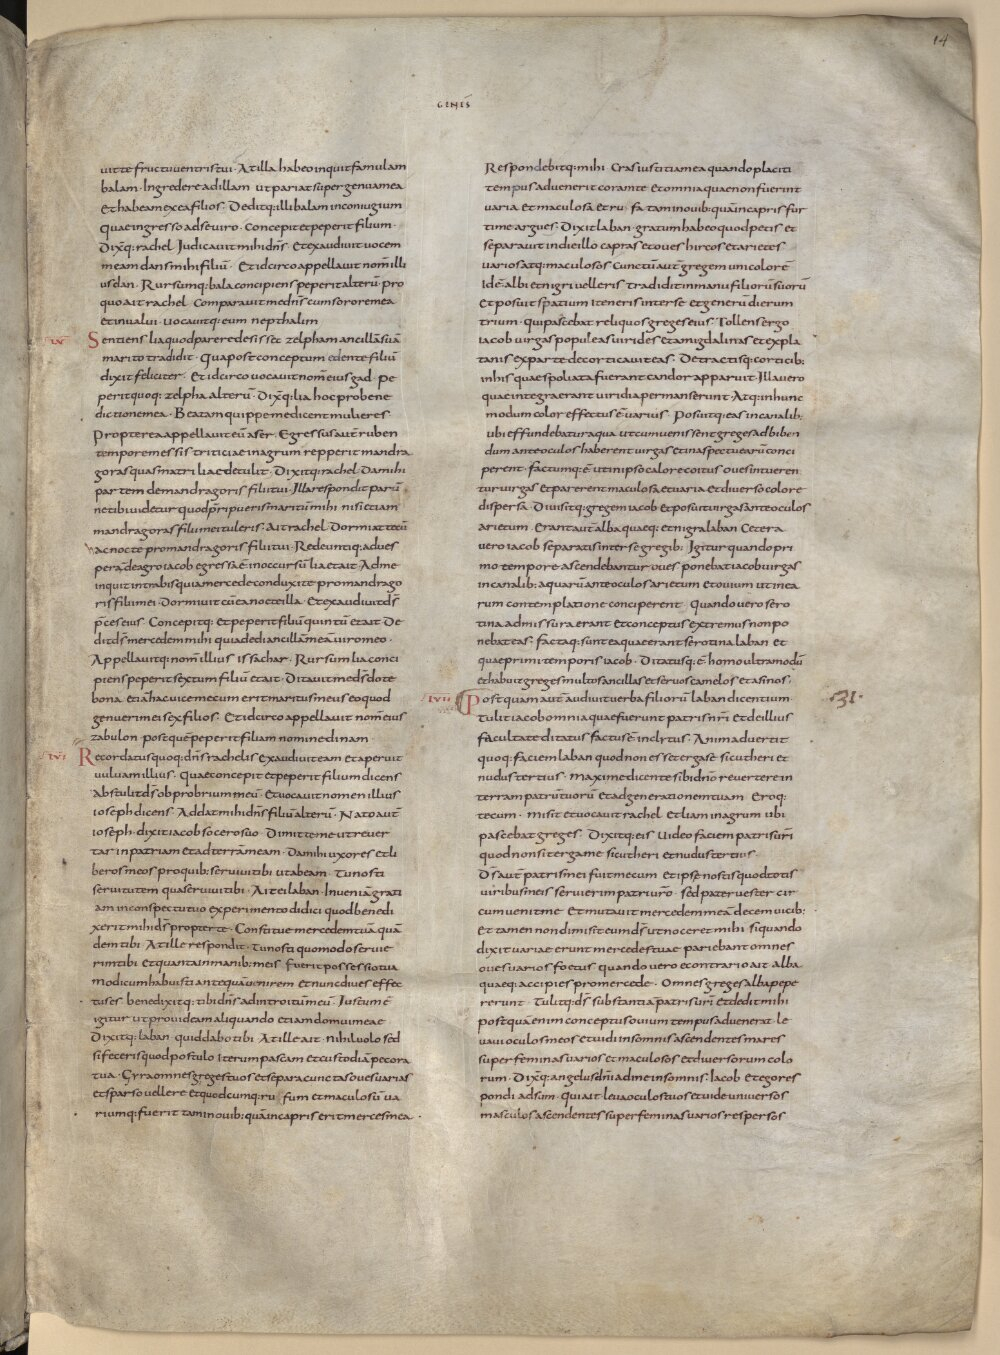 14
GENES̄
uit te fructu uentris tui · At illa habeo inquit famulam
balam · Ingredere ad illam ut pariat super genua mea
Et habeam ex ea filios · Deditq: illi balam in coniugium
Quae ingresso ad se uiro · Concepit et peperit filium ·
Dixq: rachel Judicauit mihi dn̄s · Et exaudiuit uocem
meam dans mihi filiū · Et idcirco appellauit nom̄ illi
us dan · Rursumq: bala concipiens peperit alterū · pro
quo ait rachel Comparauit me dn̄s cum sorore mea
et inualui · uocauitq: eum nepthalim
lv Sentiens lia quod parere desisset zelpham ancillā suā
marito tradidit · Qua post conceptum edente filiū
dixit feliciter · Et idcirco uocauit nom̄ eius gad · Pe
perit quoq: zelpha alterū · Dixq: lia hoc pro bene
dictione mea · Beatam quippe me dicent mulieres
Propterea appellauit eū aser · Egressus aut̄ ruben
tempore messis triticiae in agrum repperit mandra
goras quas matri liae detulit · Dixitq: rachel Da mihi
partem de mandragoris filii tui · Illa respondit parū
ne tibi uidetur quod p̄ripueris maritū mihi nisi etiam
mandragoras filii mei tuleris · Ait rachel Dormiat tecū
hac nocte pro mandragoris filii tui · Redeuntiq: ad ues
perā de agro iacob egressa ē in occursū lia et ait Ad me
inquit intrabis quia mercede conduxi te pro mandrago
ris filii mei · Dormiuit cū ea nocte illa · Et exaudiuit ds̄
p̄ces eius · Concepitq: et peperit filiū quintū et ait De
dit ds̄ mercedem mihi quia dedi ancillā meā uiro meo ·
Appellauitq: nom̄ illius issachar · Rursum lia conci
piens peperit sextum filiū et ait · Ditauit me ds̄ dote
bona etiā hac uice mecum erit maritus meus eo quod
genuerim ei sex filios · Et idcirco appellauit nom̄ eius
zabulon · post quē peperit filiam nomine dinam ·
lvi Recordatus quoq: dn̄s rachelis exaudiuit eam et aperuit
uuluam illius · Quae concepit et peperit filium dicens
abstulit ds̄ obprobrium meū · Et uocauit nomen illius
ioseph dicens · Addat mihi dn̄s filiū alterū · Nato aut̄
ioseph · dixit iacob socero suo · Dimitte me ut reuer
tar in patriam et ad terrā meam · Da mihi uxores et li
beros meos pro quib: seruiui tibi ut abeam · Tu nosti
seruitutem qua seruiui tibi · Ait ei laban · Inueniā grati
am in conspectu tuo experimento didici quod benedi
xerit mihi ds̄ propter te · Constitue mercedem tuā quā
dem tibi At ille respondit · Tu nosti quomodo seruie
rim tibi et quanta in manib: meis fuerit possessio tua
modicum habuisti antequā uenirem et nunc diues effec
tus es benedixitq: tibi dn̄s ad introitū meū · Justum ē
igitur ut prouideam aliquando etiam domui meae
Dixitq: laban · quid dabo tibi At ille ait · nihil uolo sed
si feceris quod postulo iterum pascam et custodiā pecora
tua · Gyra omnes greges tuos et separa cunctas oues uarias
et sparso uellere et quodcumq: ru fum et maculosū ua
riumq: fuerit tam in ouib: quā in capris erit merces mea ·
Respondebitq: mihi Cras iustitia mea quando placiti
tempus aduenerit coram te Et omnia quae non fuerint
uaria et maculosa et ru fa tam in ouib: quā in capris fur
ti me argues · Dixit laban · gratum habeo quod petis et
separauit in die illo capras et oues hircos et arietes
uarios atq: maculosos Cunctū aut̄ gregem unicolorē
Id ē albi et nigri uelleris tradidit in manu filiorū suorū
Et posuit spatium iteneris inter se et generū dierum
trium · qui pascebat reliquos greges eius · Tollens ergo
iacob uirgas populeas uirides et amigdalinas et expla
tanis ex parte decorticauit eas · Detractisq: corticib:
in his quae spoliata fuerant candor apparuit · Illa uero
quae integra erant uiridia permanserunt · Atq: in hunc
modum color effectus ē uarius · Posuitq: eas in canalib:
ubi effundebatur aqua ut cum uenissent greges ad biben
dum ante oculos haberent uirgas et in aspectu earū conci
perent · factumq: ē ut in ipso calore coitus oues intueren
tur uirgas et parerent maculosa et uaria et diuerso colore
dispersa · Diuisitq: gregem iacob et posuit uirgas ante oculos
arietum · Erant aut̄ alba quaeq: et nigra laban Cetera
uero iacob separatis inter se gregib: Igitur quando pri
mo tempore ascendebantur oues ponebat iacob uirgas
in canalib: aquarū ante oculos arietum et ouium ut in ea
rum contemplatione conciperent · Quando uero sero
tina admissura erant Et conceptus extremus non po
nebat eas · factaq: sunt ea quae erant serotina laban Et
quae primi temporis iacob · Ditatusq: ē homo ultra modū
et habuit greges multos ancillas et seruos camelos et asinos ·
lvii Postquam aut̄ audiuit uerba filiorū laban dicentium · 31 ·
Tulit iacob omnia quae fuerunt patris nr̄i Et de illius
facultate ditatus factus ē inclytus · Animaduertit
quoq: faciem laban quod non esset erga se sicut heri et
nudus tertius · Maxime dicente sibi dn̄o reuertere in
terram patrū tuorū et ad generationem tuam · Eroq:
tecum · Misit et uocauit rachel Et liam in agrum ubi
pascebat greges · Dixitq: eis Uideo faciem patris ur̄i
quod non sit erga me sicut heri et nudus tertius ·
Ds̄ aut̄ patris mei fuit mecum Et ipse nostis quod totis
uiribus meis seruierim patri ur̄o · sed pater uester cir
cumuenit me Et mutauit mercedem meā decem uicib:
Et tamen non dimisit eum ds̄ ut noceret mihi · si quando
dixit uariae erunt mercedes tuae pariebant omnes
oues uarios foetus quando uero e contrario ait alba
quaeq: accipies pro mercede · Omnes greges alba pepe
rerunt · Tulitq: ds̄ substantiā patris ur̄i Et dedit mihi
postquā enim conceptus ouium tempus aduenerat · le
uaui oculos meos et uidi in somnis ascendentes mares
super feminas uarios et maculosos et diuersorum colo
rum · Dixq: angelus dn̄i ad me in somnis · Iacob Et ego res
pondi adsum · Qui ait leua oculos tuos et uide uniuersos
masculos ascendentes super feminas uarios respersos